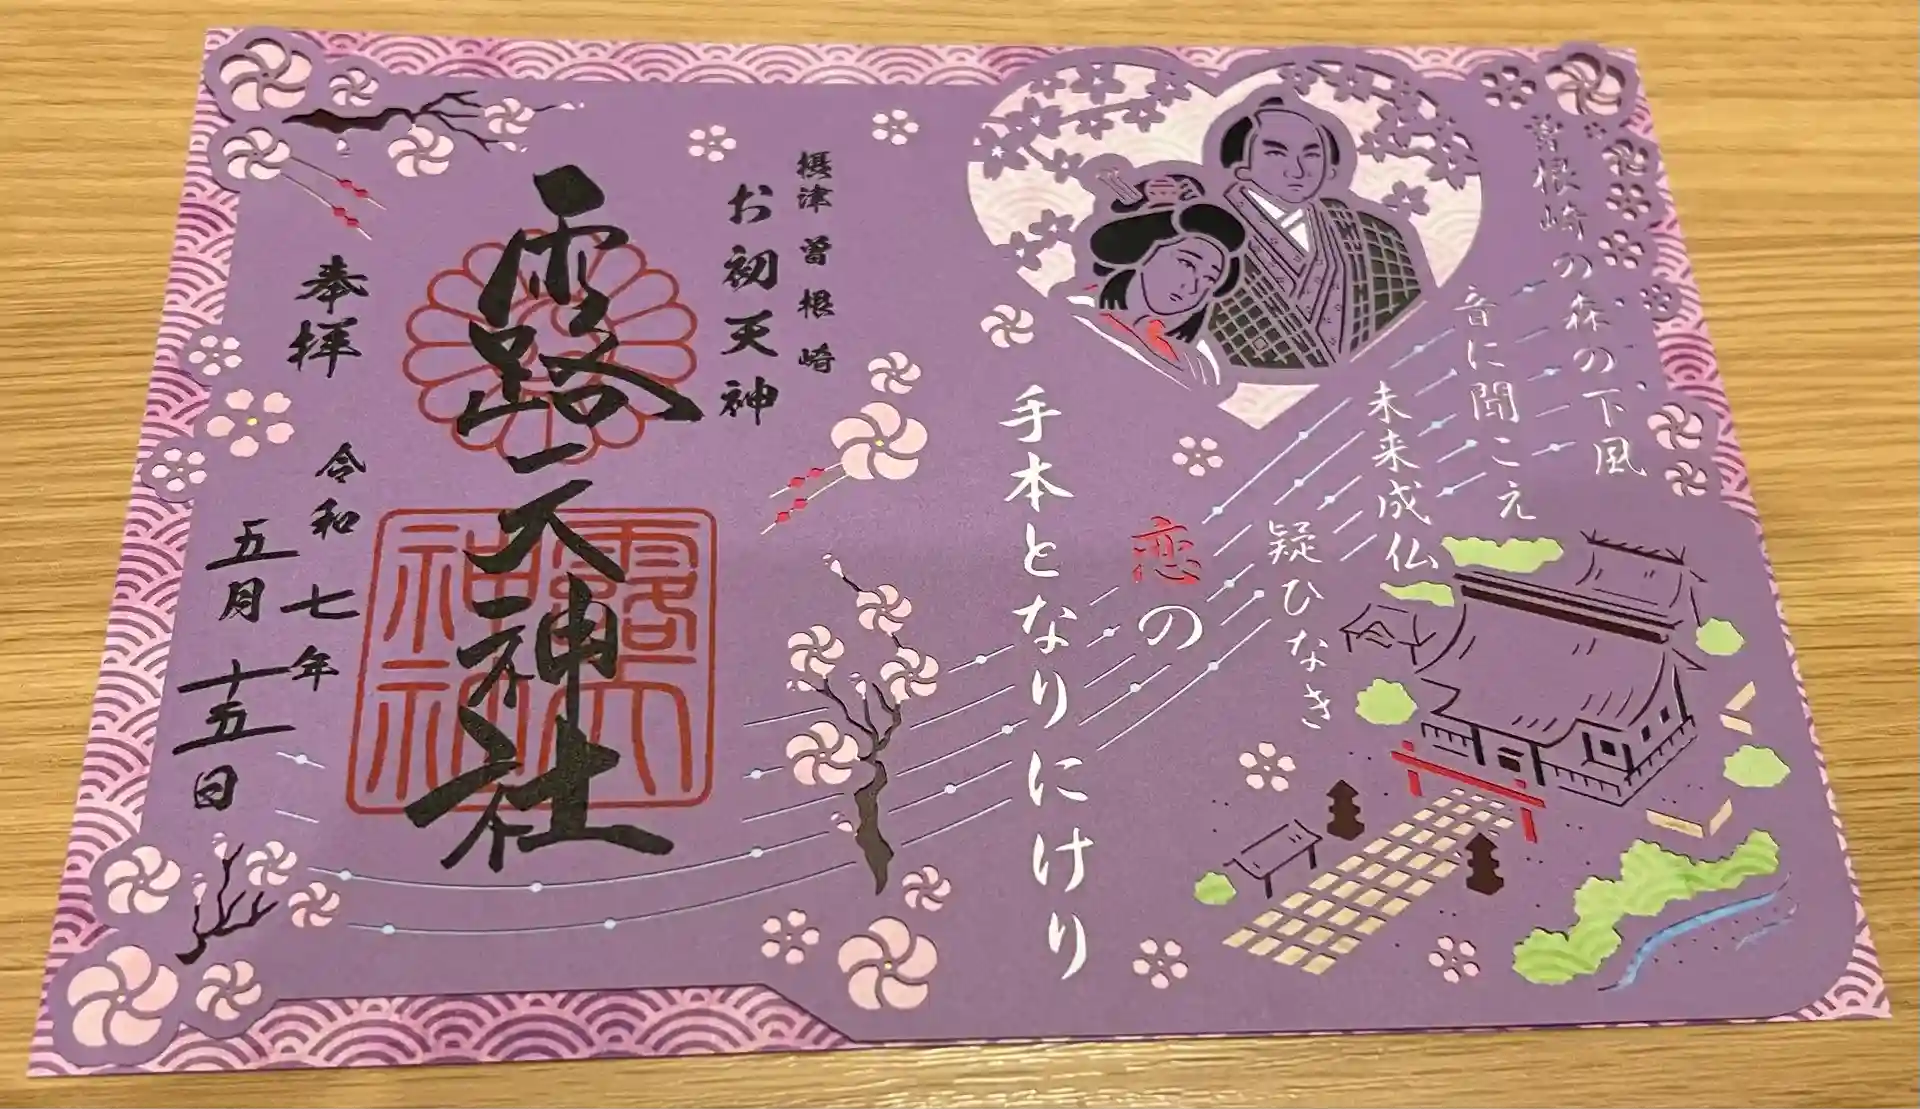 曽根崎の森の下風
音に聞こえ
未来成仏
疑ひなき
恋の
手本となりにけり
摂津 曽根崎
お初天神
露天神社
露天
神社
奉拝
令和七年
五月十五日